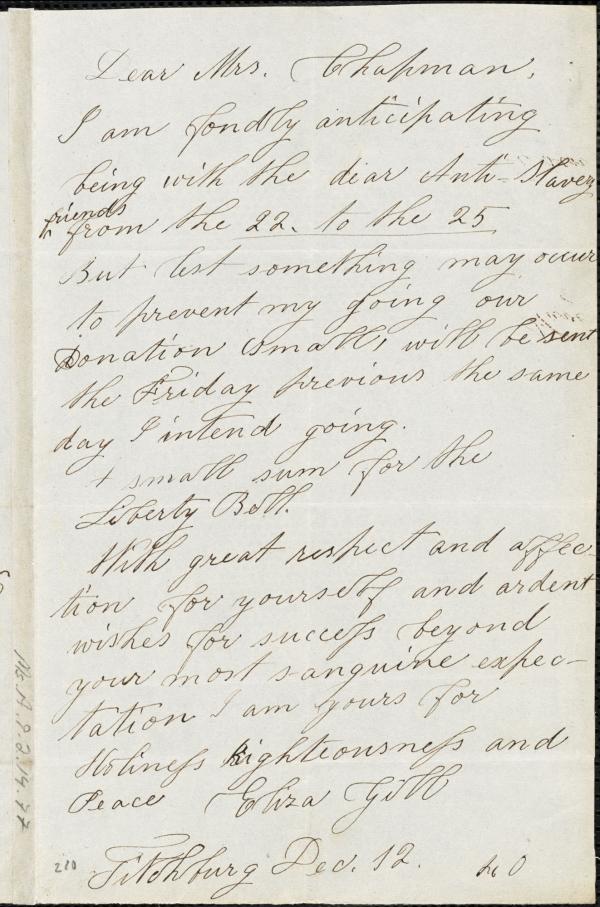 Dear Mrs. Chapman,
I am fondly anticipating
being with the dear Anti-Slavery
friends
^ from the 22. to the 25
But lest something may occur
to prevent my going our
Donation small, will be sent
the Friday previous the same
day I intend going.
+ small sum for the
Liberty Bell.
With great respect and affec-
tion for yourself and ardent
wishes for success beyond
your most sanguine expec-
tation I am yours for
Holiness Righteousness and
Peace Eliza Gill
Fitchburg Dec. 12.
210
Ms.A.9.2.14.77